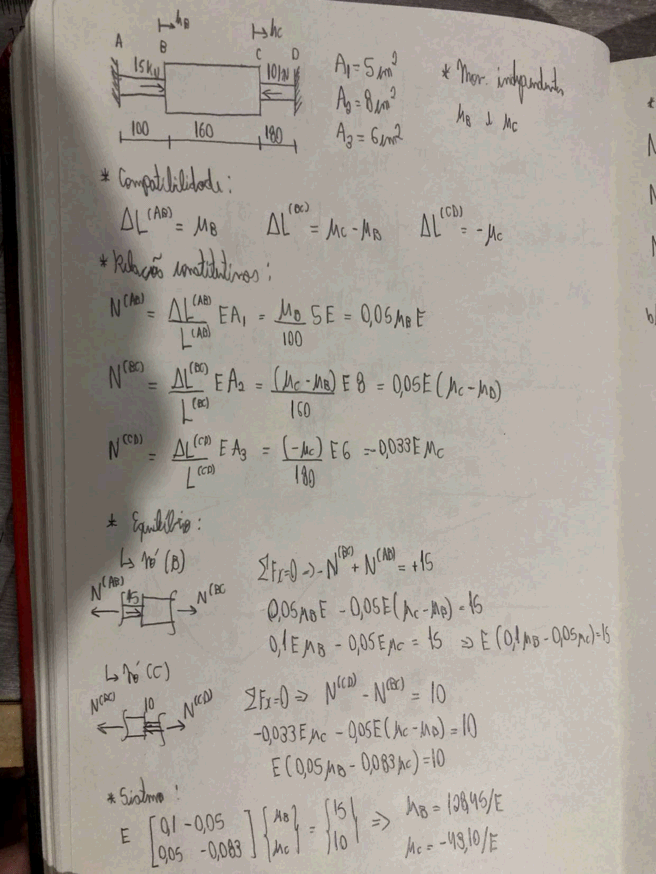 μB μC
A B C D
15kN 10kN
100 160 180
A₁ = 5cm²
A₂ = 8cm²
A₃ = 6cm²
* Mov. independentes
μB ↓ μC
* Compatibilidade:
ΔL^(AB) = μB ΔL^(BC) = μC - μB ΔL^(CD) = -μC
* Relação constitutivas:
N^(AB) = ΔL^(AB)/L^(AB) EA₁ = μB/100 5E = 0,05μB E
N^(BC) = ΔL^(BC)/L^(BC) EA₂ = (μC - μB)/160 E8 = 0,05E(μC - μB)
N^(CD) = ΔL^(CD)/L^(CD) EA₃ = (-μC)/180 E6 = -0,033EμC
* Equilíbrio:
↳ nó (B)
N^(AB) 15 N^(BC
ΣFx=0 => -N^(BC) + N^(AB) = +15
0,05μB E - 0,05E(μC - μB) = 15
0,1EμB - 0,05EμC = 15 => E(0,1μB - 0,05μC)=15
↳ nó (C)
N^(BC) 10 N^(CD)
ΣFx=0 => N^(CD) - N^(BC) = 10
-0,033EμC - 0,05E(μC - μB) = 10
E(0,05μB - 0,083μC) = 10
* Sistema:
E [0,1 -0,05
0,05 -0,083] {μB
μC} = {15
10} => μB = 128,45/E
μC = -43,10/E